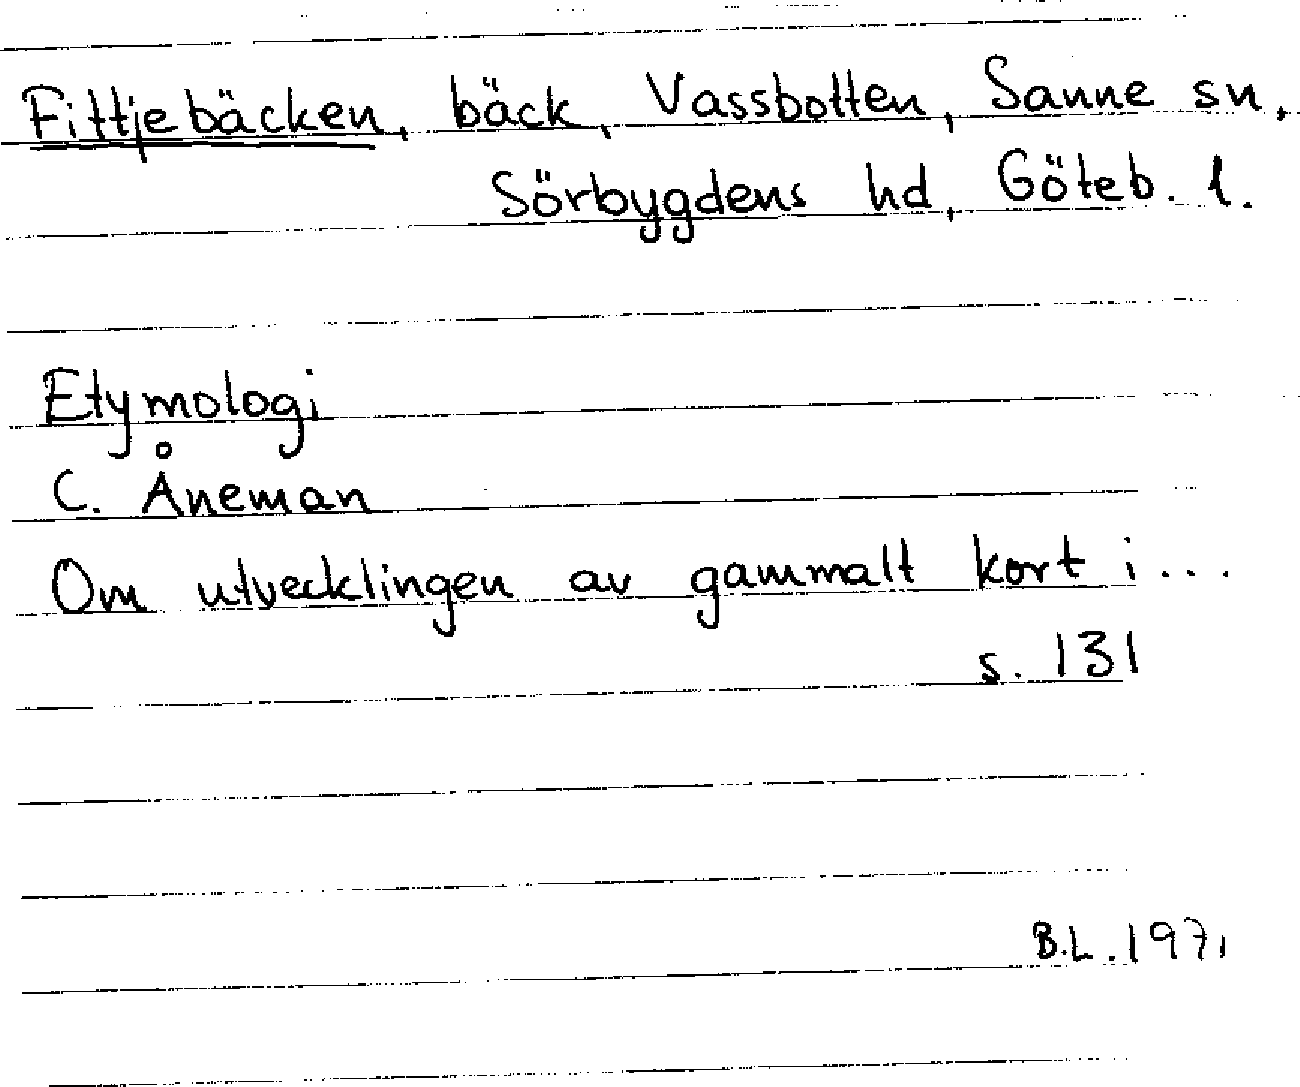 Fittjebäcken, bäck, Vassbotten, Sanne sn,
Sörbygdens hd, Göteb. l.
Etymologi
C. Åneman
Om utvecklingen av gammalt kort i...
s. 131
B.L. 1971